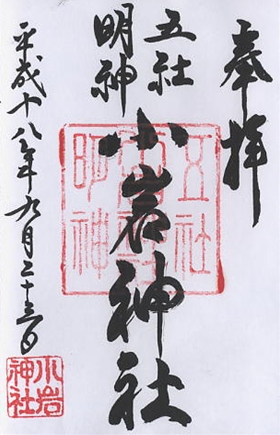 奉拝
五社
明神
小岩神社
平成十八年九月二十三日
五社
明神
小岩
神社